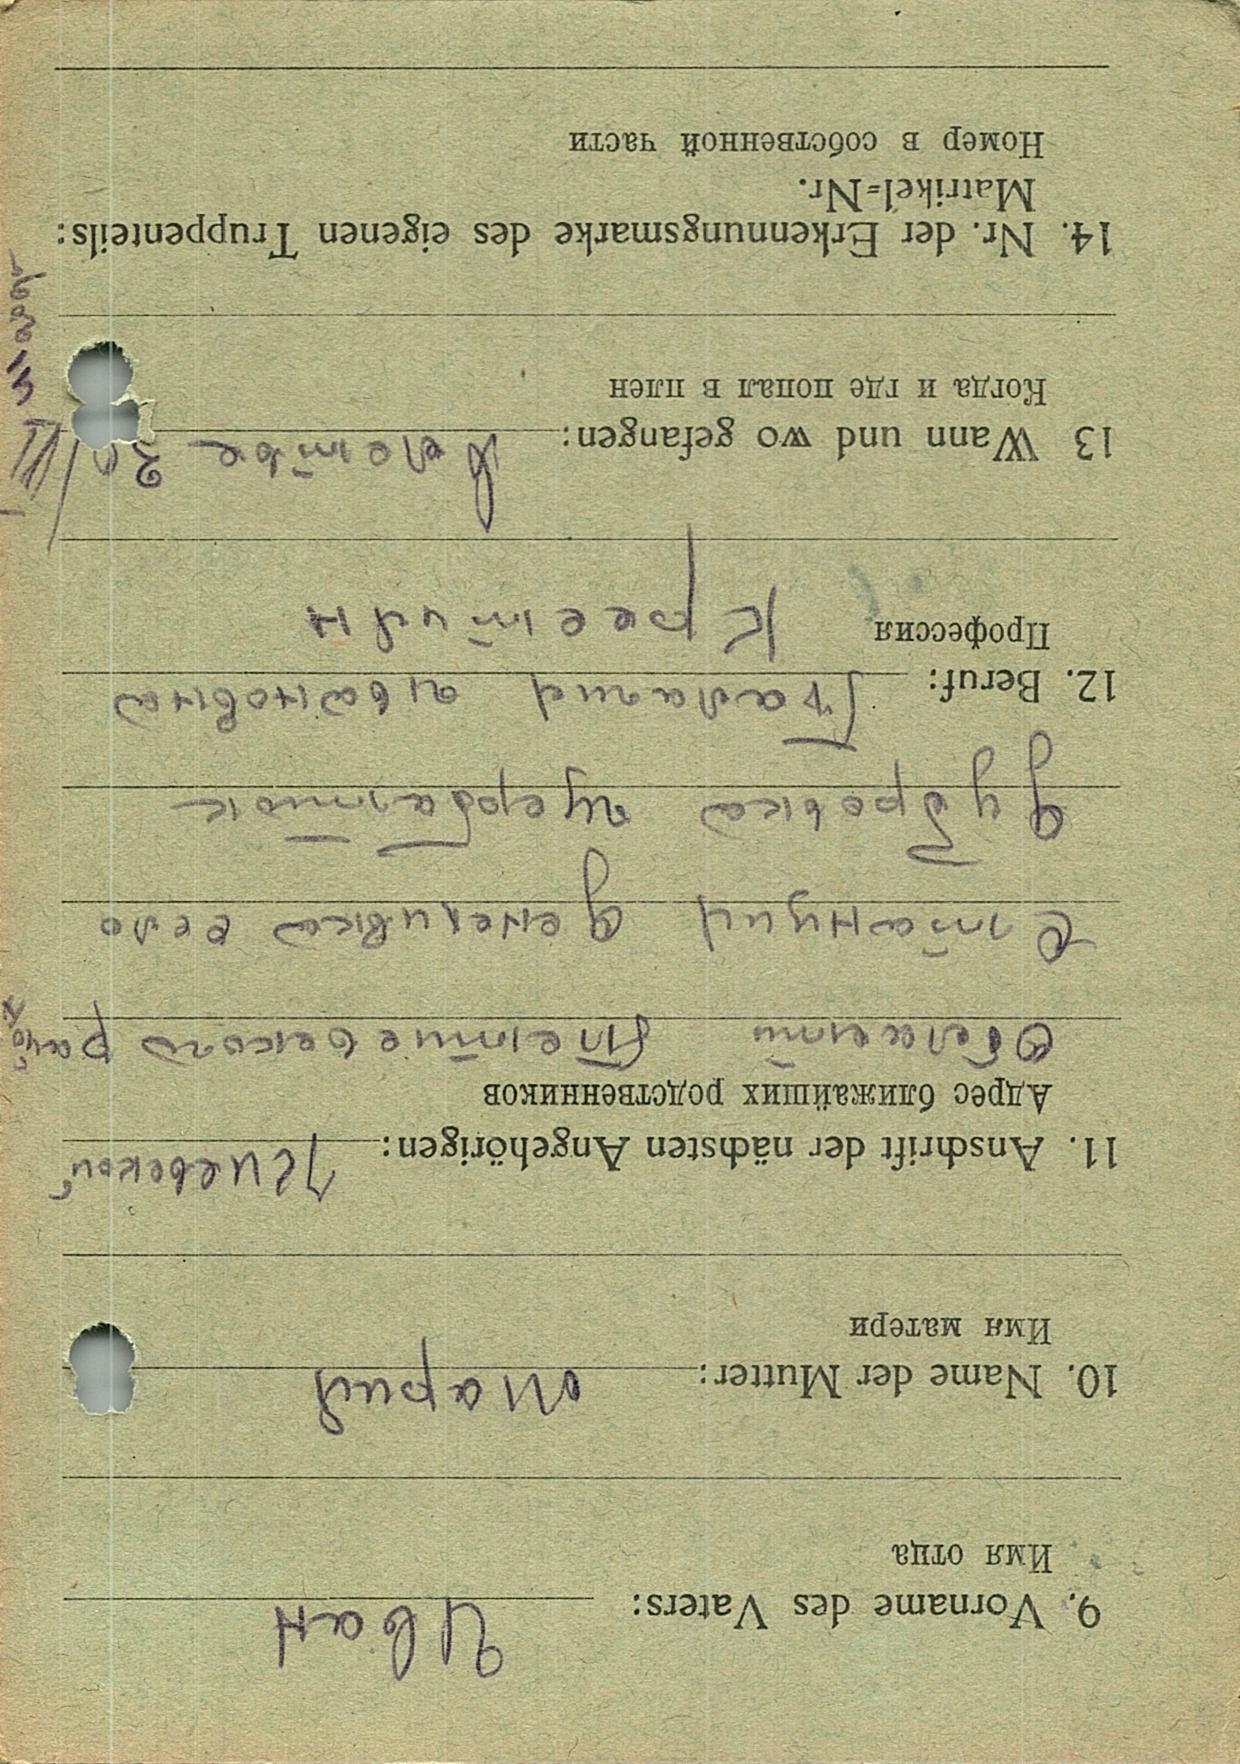 9. Vorname des Vaters: Иван
Имя отца
10. Name der Mutter: Мария
Имя матери
11. Anschrift der nächsten Angehörigen: Киевской
Адрес ближайших родственников
Области Тетиевского район
Станция Денгивка село
Дубровка
ивановна
12. Beruf:
Профессия
Крестиян
13 Wann und wo gefangen:
Когда и где попал в плен
14. Nr. der Erkennungsmarke des eigenen Truppenteils:
Matrikel=Nr.
Номер в собственной части